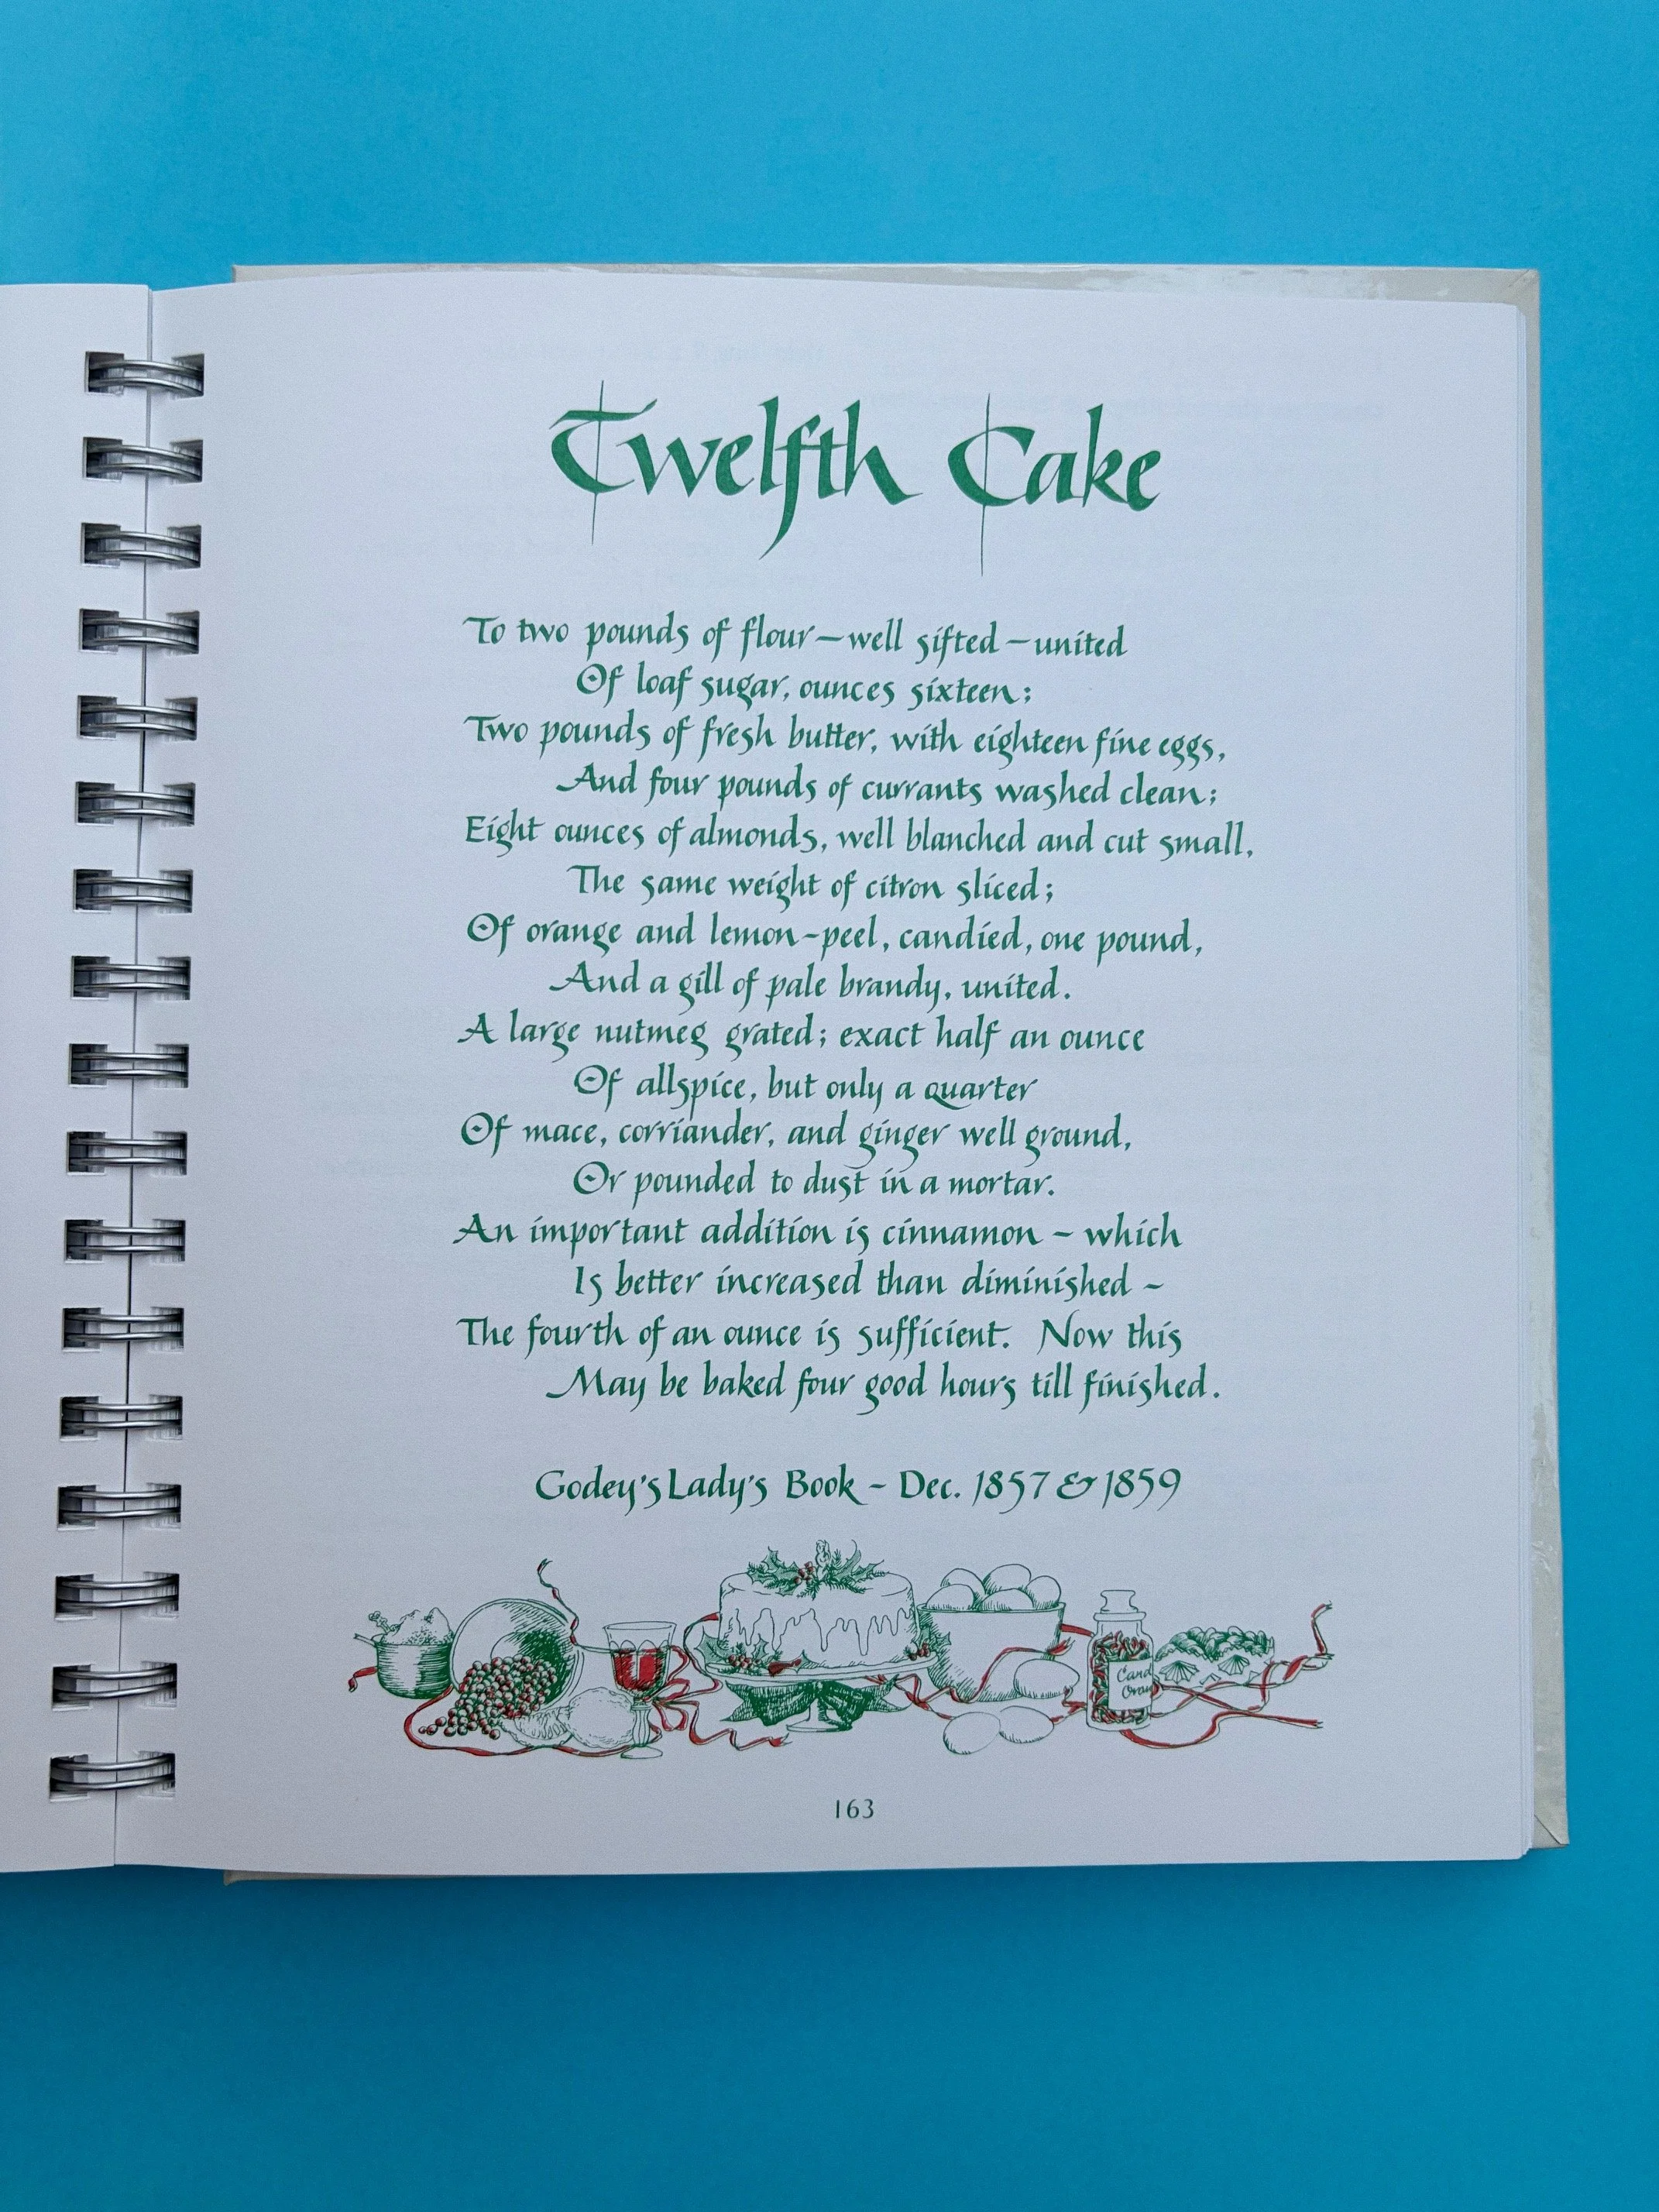 Twelfth Cake
To two pounds of flour—well sifted—united
Of loaf sugar, ounces sixteen;
Two pounds of fresh butter, with eighteen fine eggs,
And four pounds of currants washed clean;
Eight ounces of almonds, well blanched and cut small,
The same weight of citron sliced;
Of orange and lemon-peel, candied, one pound,
And a gill of pale brandy, united.
A large nutmeg grated; exact half an ounce
Of allspice, but only a quarter
Of mace, corriander, and ginger well ground,
Or pounded to dust in a mortar.
An important addition is cinnamon - which
Is better increased than diminished -
The fourth of an ounce is sufficient. Now this
May be baked four good hours till finished.
Godey's Lady's Book - Dec. 1857 & 1859
Cand
Oran
163